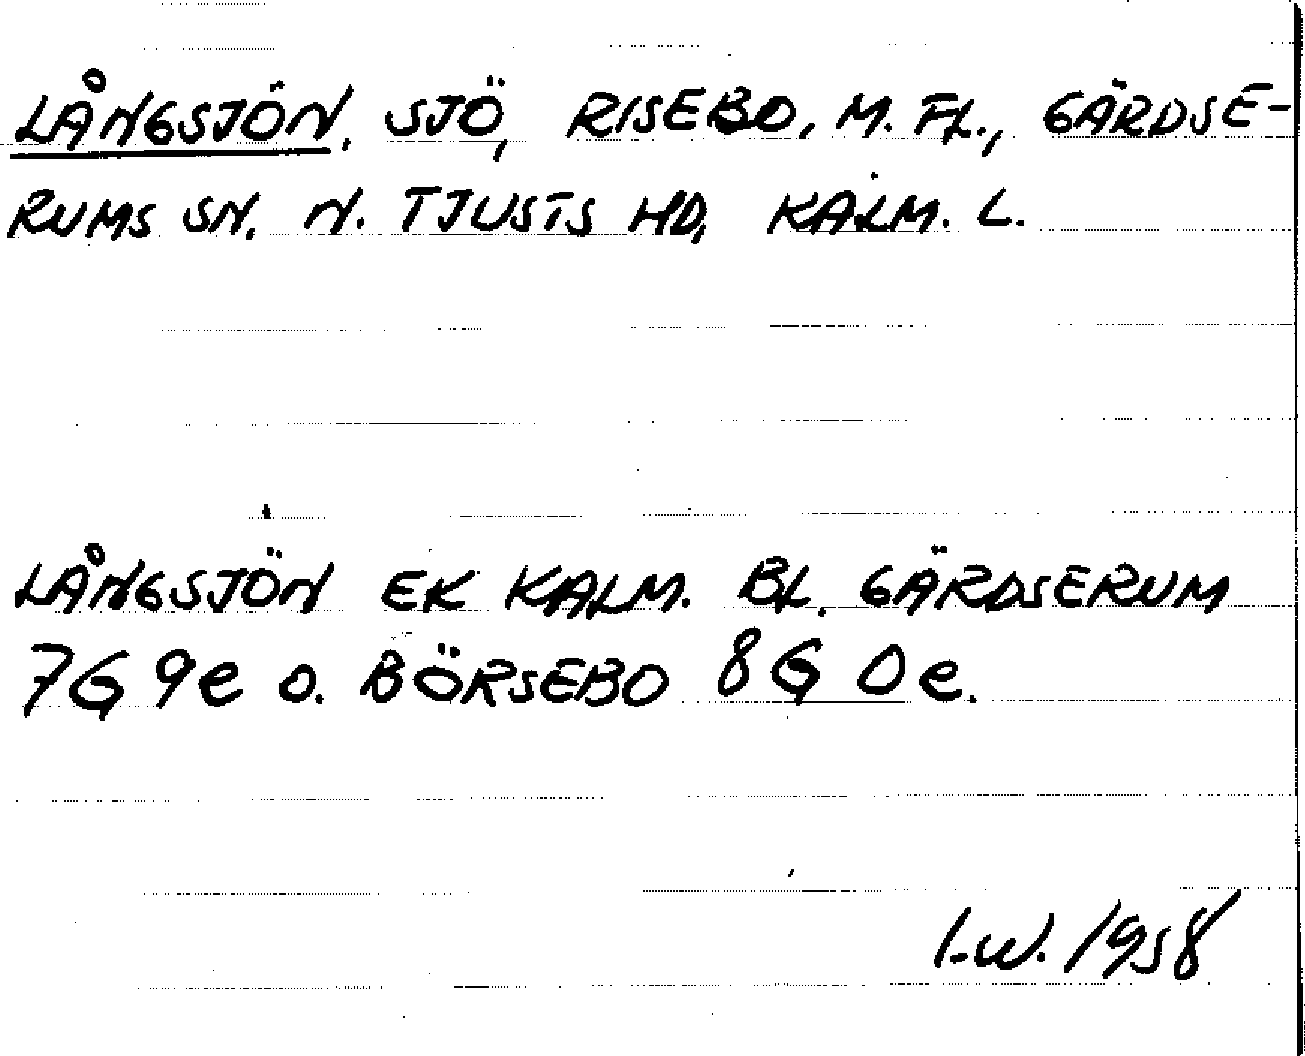 LÅNGSJÖN, SJÖ, RISEBO, M. FL., GÄRDSE-
RUMS SN. N. TJUSTS HD, KALM. L.
LÅNGSJÖN EK KALM. BL. GÄRDSERUM
7G 9e o. BÖRSEBO 8G 0e.
I.W. 1958